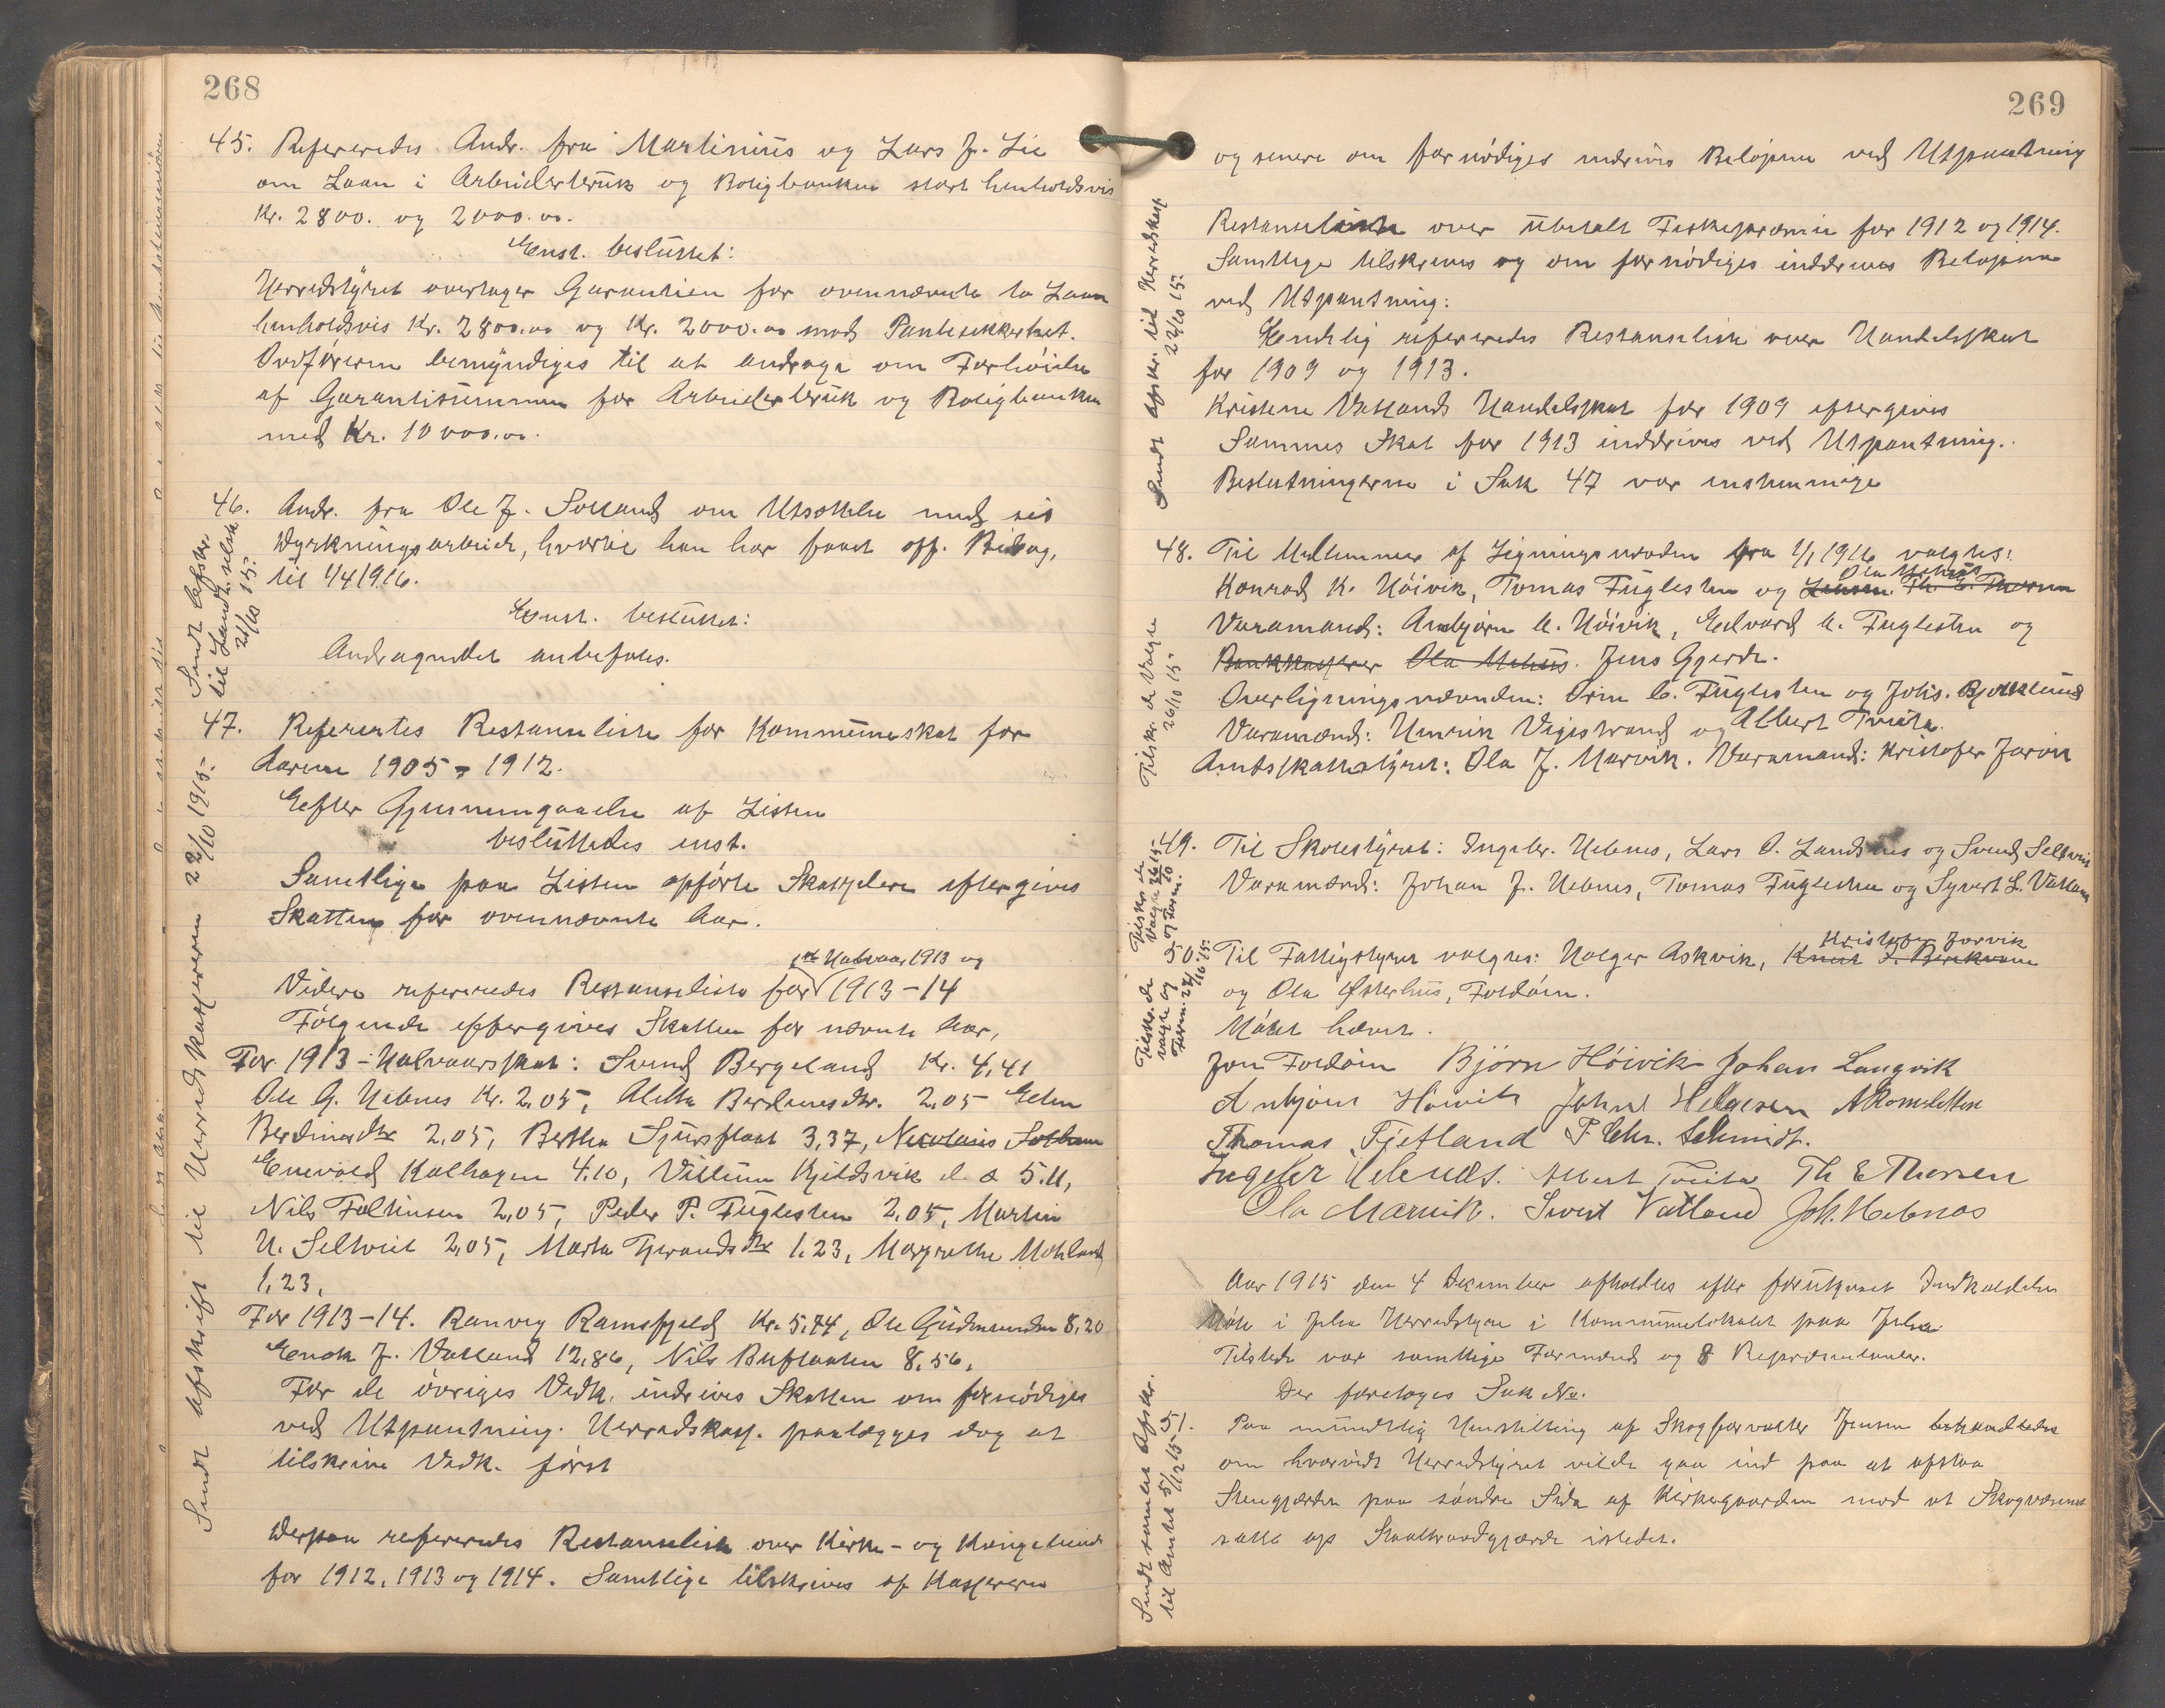 268
45. Refereredes Andr. fra Martinius og Lars J. Lie
om Laan i Arbeiderbruk og Boligbanken stort henholdsvis
Kr. 2800. og 2000.00.
Enst. besluttet:
Herredstyret overtager Garantien for ovennævnte to Laan
henholdsvis Kr. 2800.00 og Kr. 2000.00 mod Pantesikkerhet.
Ordføreren bemyndiges til at andrage om Forhøielse
af Garantisummen for Arbeiderbruk og Boligbanken
med Kr. 10000.00.
46. Andr. fra Ole J. Vatland om Utsættelse med sit
Dyrkningsarbeide, hvortil han har faaet off. Bidrag,
til 1/4 1916.
Enst. besluttet:
Andragendet anbefales.
Sendt Afskr.
til Landh. selsk.
22/10 15.
47. Refereredes Restanseliste for Kommuneskat for
Aarene 1905 - 1912.
Efter Gjennemgaaelse af Listen
besluttedes enst.
Samtlige paa Listen opførte Skatydere eftergives
Skatten for ovennævnte Aar.
1ste Halvaar 1913 og
Videre refereredes Restanseliste for 1913-14
Følgende eftergives Skatten for nævnte Aar,
For 1913 - Halvaarsskat: Svend Bergeland Kr. 4,41
Ole G. Hebnes Kr. 2,05, Aletta Berdinesdtr. 2,05 Elen
Berdinesdtr 2,05, Berthe Sjursflaat 3,37, Nicolais
Enevald Kalhagen 4.10, Villum Kjeldsvik d. æ 5.11,
Nils Foltinsen 2,05, Peder P. Fuglesten 2,05, Martin
H. Seltveit 2,05, Marta Tjerandsdtr 1.23, Margrethe Mehland
1,23,
For 1913-14. Ranveig Ramsfjeld Kr. 5,74, Ole Gudmundsen 8,20
Enok J. Vatland 12,86, Nils Buflaaten 8,56,
For de øvriges Vedk. indrives Skatten om fornødiges
ved Utpantning. Herredskass. paalægges dog at
tilskrive Vedk. først
Derpaa refereredes Restanseliste over Kirke- og
for 1912, 1913 og 1914. Samtlige tilskrives af Kassereren
Sendt afskrift til Herredskassereren 22/10 1915.
269
og senere om fornødiges indrives Beløpene ved Utpantning
Restanseliste over ubetalt Fiskepræmie for 1912 og 1914.
Samtlige tilskrives og om fornødiges inddrives Beløpene
ved Utpantning:
Endelig refereredes Restanseliste over Handelsskat
for 1909 og 1913.
Kristene Vatlands Handelsskat for 1909 eftergives
Sammes Skat for 1913 inddrives ved Utpantning.
Beslutningerne i Sak 47 var enstemmige
Sendt Afskr. til Herredskass
22/10 15.
48. Til Medlemmer af Ligningsnævnden fra 1/1 1916 valgtes:
Ola Mehus
Konrad K. Høivik, Tomas Fuglesten og Th. E. Thorsen
Varamænd: Anbjørn A. Høivik, Edvard A. Fuglesten og
Bankkasserer Ola Mehus. Jens Gjerde.
Overligningsnævnden: Orm C. Fuglesten og Johs. Bjørklund
Varamænd: Henrik Vigestrand og Albert Tveita.
Amtsskattestyret: Ola J. Marvik. Varamand: Kristofer Jarvik
Tilskr. de Valgte
26/10 15.
49. Til Skolestyret: Ingebr. Hebnes, Lars O. Landsnes og Svend Seltveit
Varamænd: Johan J. Hebnes, Tomas Fuglesten og Syvert L. Vatland
Tilskr. de
Valgte 26/10 15
og Form.
Kristofer Jarvik
50 Til Fattigstyret valgtes: Holger Askvik, Knut J. Birkeland
og Ola Østerhus, Foldøen.
Møtet hævet.
Tilskr. de
valgte og
Form. 27/10 15.
Jon Foldøen Bjørn Høivik Johan Langvik
Anbjørn Høivik John Helgesen A Romsletten
Thomas Fjetland P. Chr. Schmidt.
Ingebr Hebnes. Albert Tveita Th E Thorsen
Ola Marvik. Sivert Vatland Joh. Hebnes
Aar 1915 den 4 Desember afholdtes efter forutgaaet Indkaldelse
Møte i Jelse Herredstyre i Kommunelokalet paa Jelse.
Tilstede var samtlige Formænd og 8 Repræsentanter.
Der foretoges Sak No.
51. Paa mundtlig Henstilling af Skogforvalter Jensen behandledes
om hvorvidt Herredstyret vilde gaa ind paa at afstaa
Stengjærdet paa søndre Side af Kirkegaarden mod at Skogvæsenet
satte op Staaltraadgjærde istedet.
Sendt samlet Afskr.
til Amtet 5/12 15